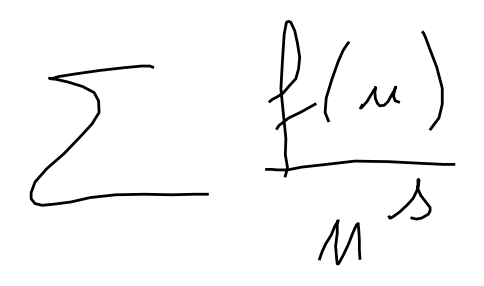 \sum \frac{f(n)}{n^s}